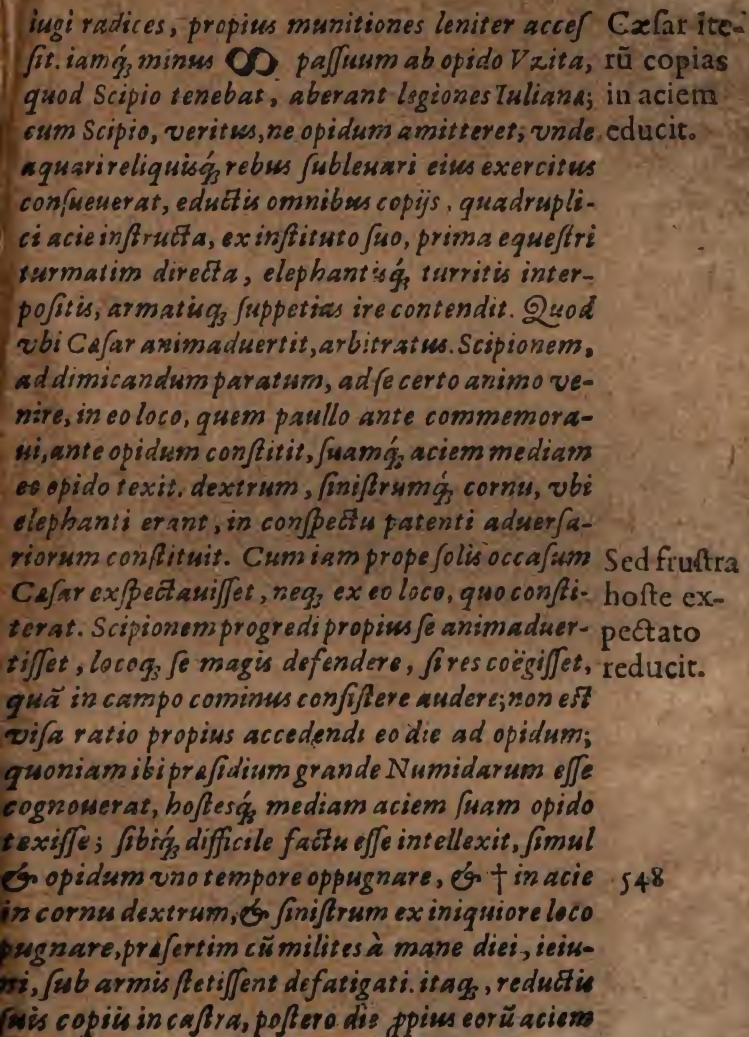 iugi radices, propius munitiones leniter acces
sit. iamq́; minus ꝏ passuum ab opido Vzita,
quod Scipio tenebat, aberant legiones Iuliana;
cum Scipio, veritus, ne opidum amitteret; vnde
aquari reliquisq́; rebus subleuari eius exercitus
consueuerat, eductis omnibus copijs, quadrupli-
ci acie instructa, ex instituto suo, prima equestri
turmatim directa, elephantisq́; turritis inter-
positis, armatisq; suppetias ire contendit. Quod
vbi Cæsar animaduertit, arbitratus. Scipionem,
ad dimicandum paratum, ad se certo animo ve-
nire, in eo loco, quem paullo ante commemora-
ui, ante opidum constitit, suamq́; aciem mediam
eo opido texit. dextrum, sinistrumq́; cornu, vbi
elephanti erant, in conspectu patenti aduersa-
riorum constituit. Cum iam prope solis occasum
Cæsar exspectauisset, neq; ex eo loco, quo consti-
terat. Scipionem progredi propius se animaduer-
tisset, locoq; se magis defendere, si res coëgisset,
quā in campo cominus consistere audere; non est
visa ratio propius accedendi eo die ad opidum;
quoniam ibi præsidium grande Numidarum esse
cognouerat, hostesq́; mediam aciem suam opido
texisse; sibiq́; difficile factu esse intellexit, simul
& opidum vno tempore oppugnare, & † in acie
in cornu dextrum, & sinistrum ex iniquiore loco
pugnare, præsertim cū milites à mane diei, ieiu-
ni, sub armis stetissent defatigati. itaq;, reductis
suis copiis in castra, postero die ꝓpius eorū aciem
Cæsar ite-
rū copias
in aciem
educit.
Sed frustra
hoste ex-
pectato
reducit.
548